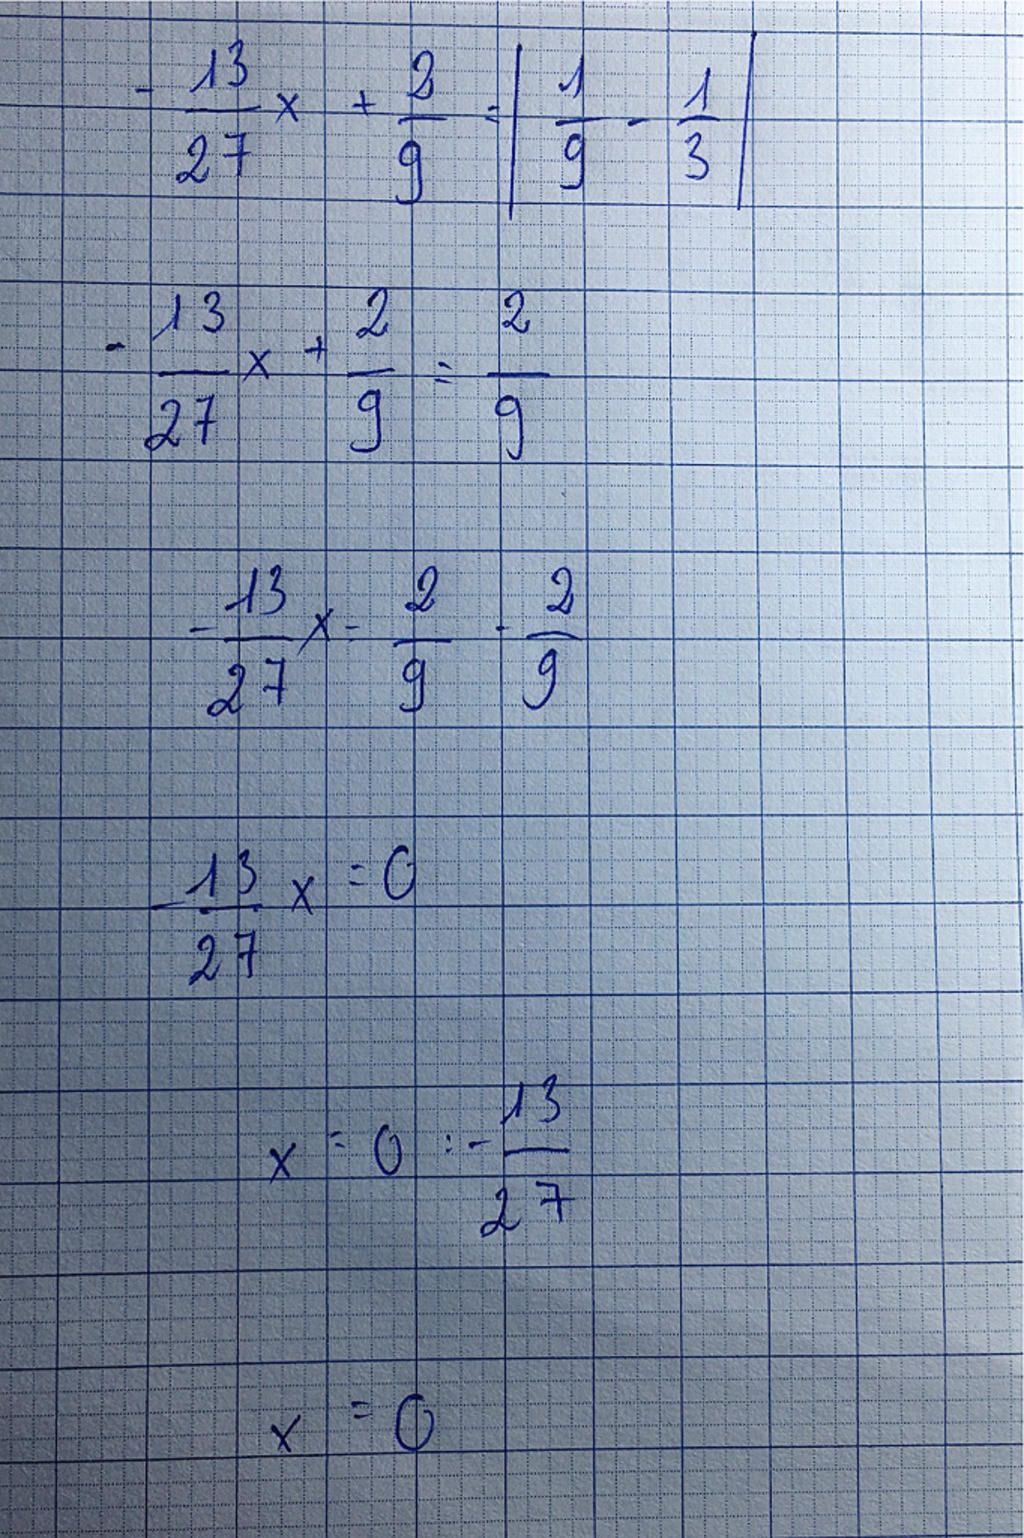 - 13/27 x + 2/9 = | 1/9 - 1/3 |
- 13/27 x + 2/9 = 2/9
- 13/27 x = 2/9 - 2/9
- 13/27 x = 0
x = 0 : - 13/27
x = 0